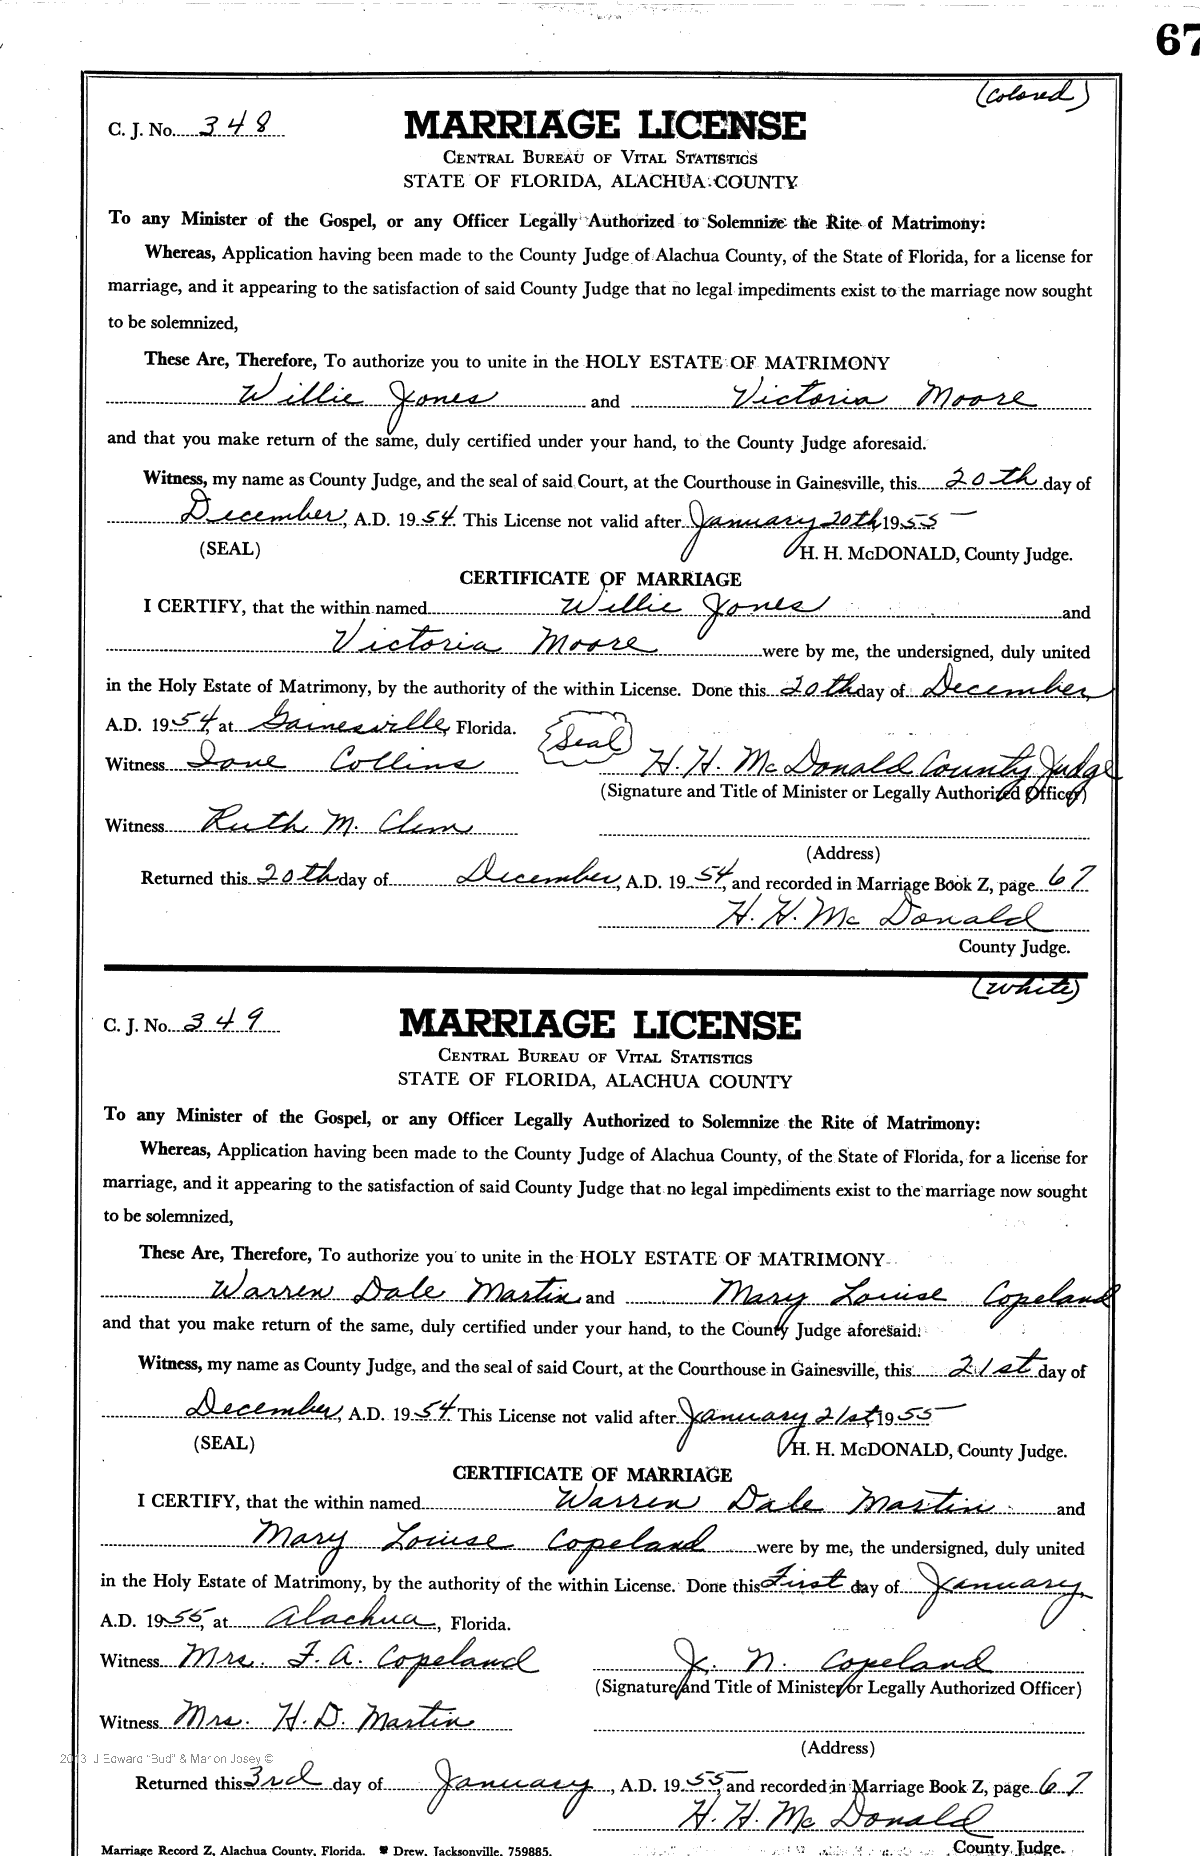 67
(Colored)
C. J. No. 348
MARRIAGE LICENSE
CENTRAL BUREAU OF VITAL STATISTICS
STATE OF FLORIDA, ALACHUA COUNTY
To any Minister of the Gospel, or any Officer Legally Authorized to Solemnize the Rite of Matrimony:
Whereas, Application having been made to the County Judge of Alachua County, of the State of Florida, for a license for
marriage, and it appearing to the satisfaction of said County Judge that no legal impediments exist to the marriage now sought
to be solemnized,
These Are, Therefore, To authorize you to unite in the HOLY ESTATE OF MATRIMONY
Willie Jones and Victoria Moore
and that you make return of the same, duly certified under your hand, to the County Judge aforesaid.
Witness, my name as County Judge, and the seal of said Court, at the Courthouse in Gainesville, this 20th day of
December, A.D. 1954. This License not valid after January 20th, 1955
(SEAL) H. H. McDONALD, County Judge.
CERTIFICATE OF MARRIAGE
I CERTIFY, that the within named Willie Jones and
Victoria Moore were by me, the undersigned, duly united
in the Holy Estate of Matrimony, by the authority of the within License. Done this 20th day of December,
A.D. 1954, at Gainesville, Florida.
Seal
Witness Ione Collins H. H. McDonald County Judge
(Signature and Title of Minister or Legally Authorized Officer)
Witness Ruth M. Clem
(Address)
Returned this 20th day of December, A.D. 1954, and recorded in Marriage Book Z, page 67
H. H. McDonald
County Judge.
(White)
C. J. No. 349
MARRIAGE LICENSE
CENTRAL BUREAU OF VITAL STATISTICS
STATE OF FLORIDA, ALACHUA COUNTY
To any Minister of the Gospel, or any Officer Legally Authorized to Solemnize the Rite of Matrimony:
Whereas, Application having been made to the County Judge of Alachua County, of the State of Florida, for a license for
marriage, and it appearing to the satisfaction of said County Judge that no legal impediments exist to the marriage now sought
to be solemnized,
These Are, Therefore, To authorize you to unite in the HOLY ESTATE OF MATRIMONY
Warren Dale Martin and Mary Louise Copeland
and that you make return of the same, duly certified under your hand, to the County Judge aforesaid.
Witness, my name as County Judge, and the seal of said Court, at the Courthouse in Gainesville, this 21st day of
December, A.D. 1954. This License not valid after January 21st, 1955
(SEAL) H. H. McDONALD, County Judge.
CERTIFICATE OF MARRIAGE
I CERTIFY, that the within named Warren Dale Martin and
Mary Louise Copeland were by me, the undersigned, duly united
in the Holy Estate of Matrimony, by the authority of the within License. Done this First day of January,
A.D. 1955, at Alachua, Florida.
Witness Mrs. F. A. Copeland J. N. Copeland
(Signature and Title of Minister or Legally Authorized Officer)
Witness Mrs. H. D. Martin
(Address)
2013 J Edward "Bud" & Marion Josey ©
Returned this 3rd day of January, A.D. 1955, and recorded in Marriage Book Z, page 67
H. H. McDonald
County Judge.
Marriage Record Z, Alachua County, Florida. Drew, Jacksonville, 759885.